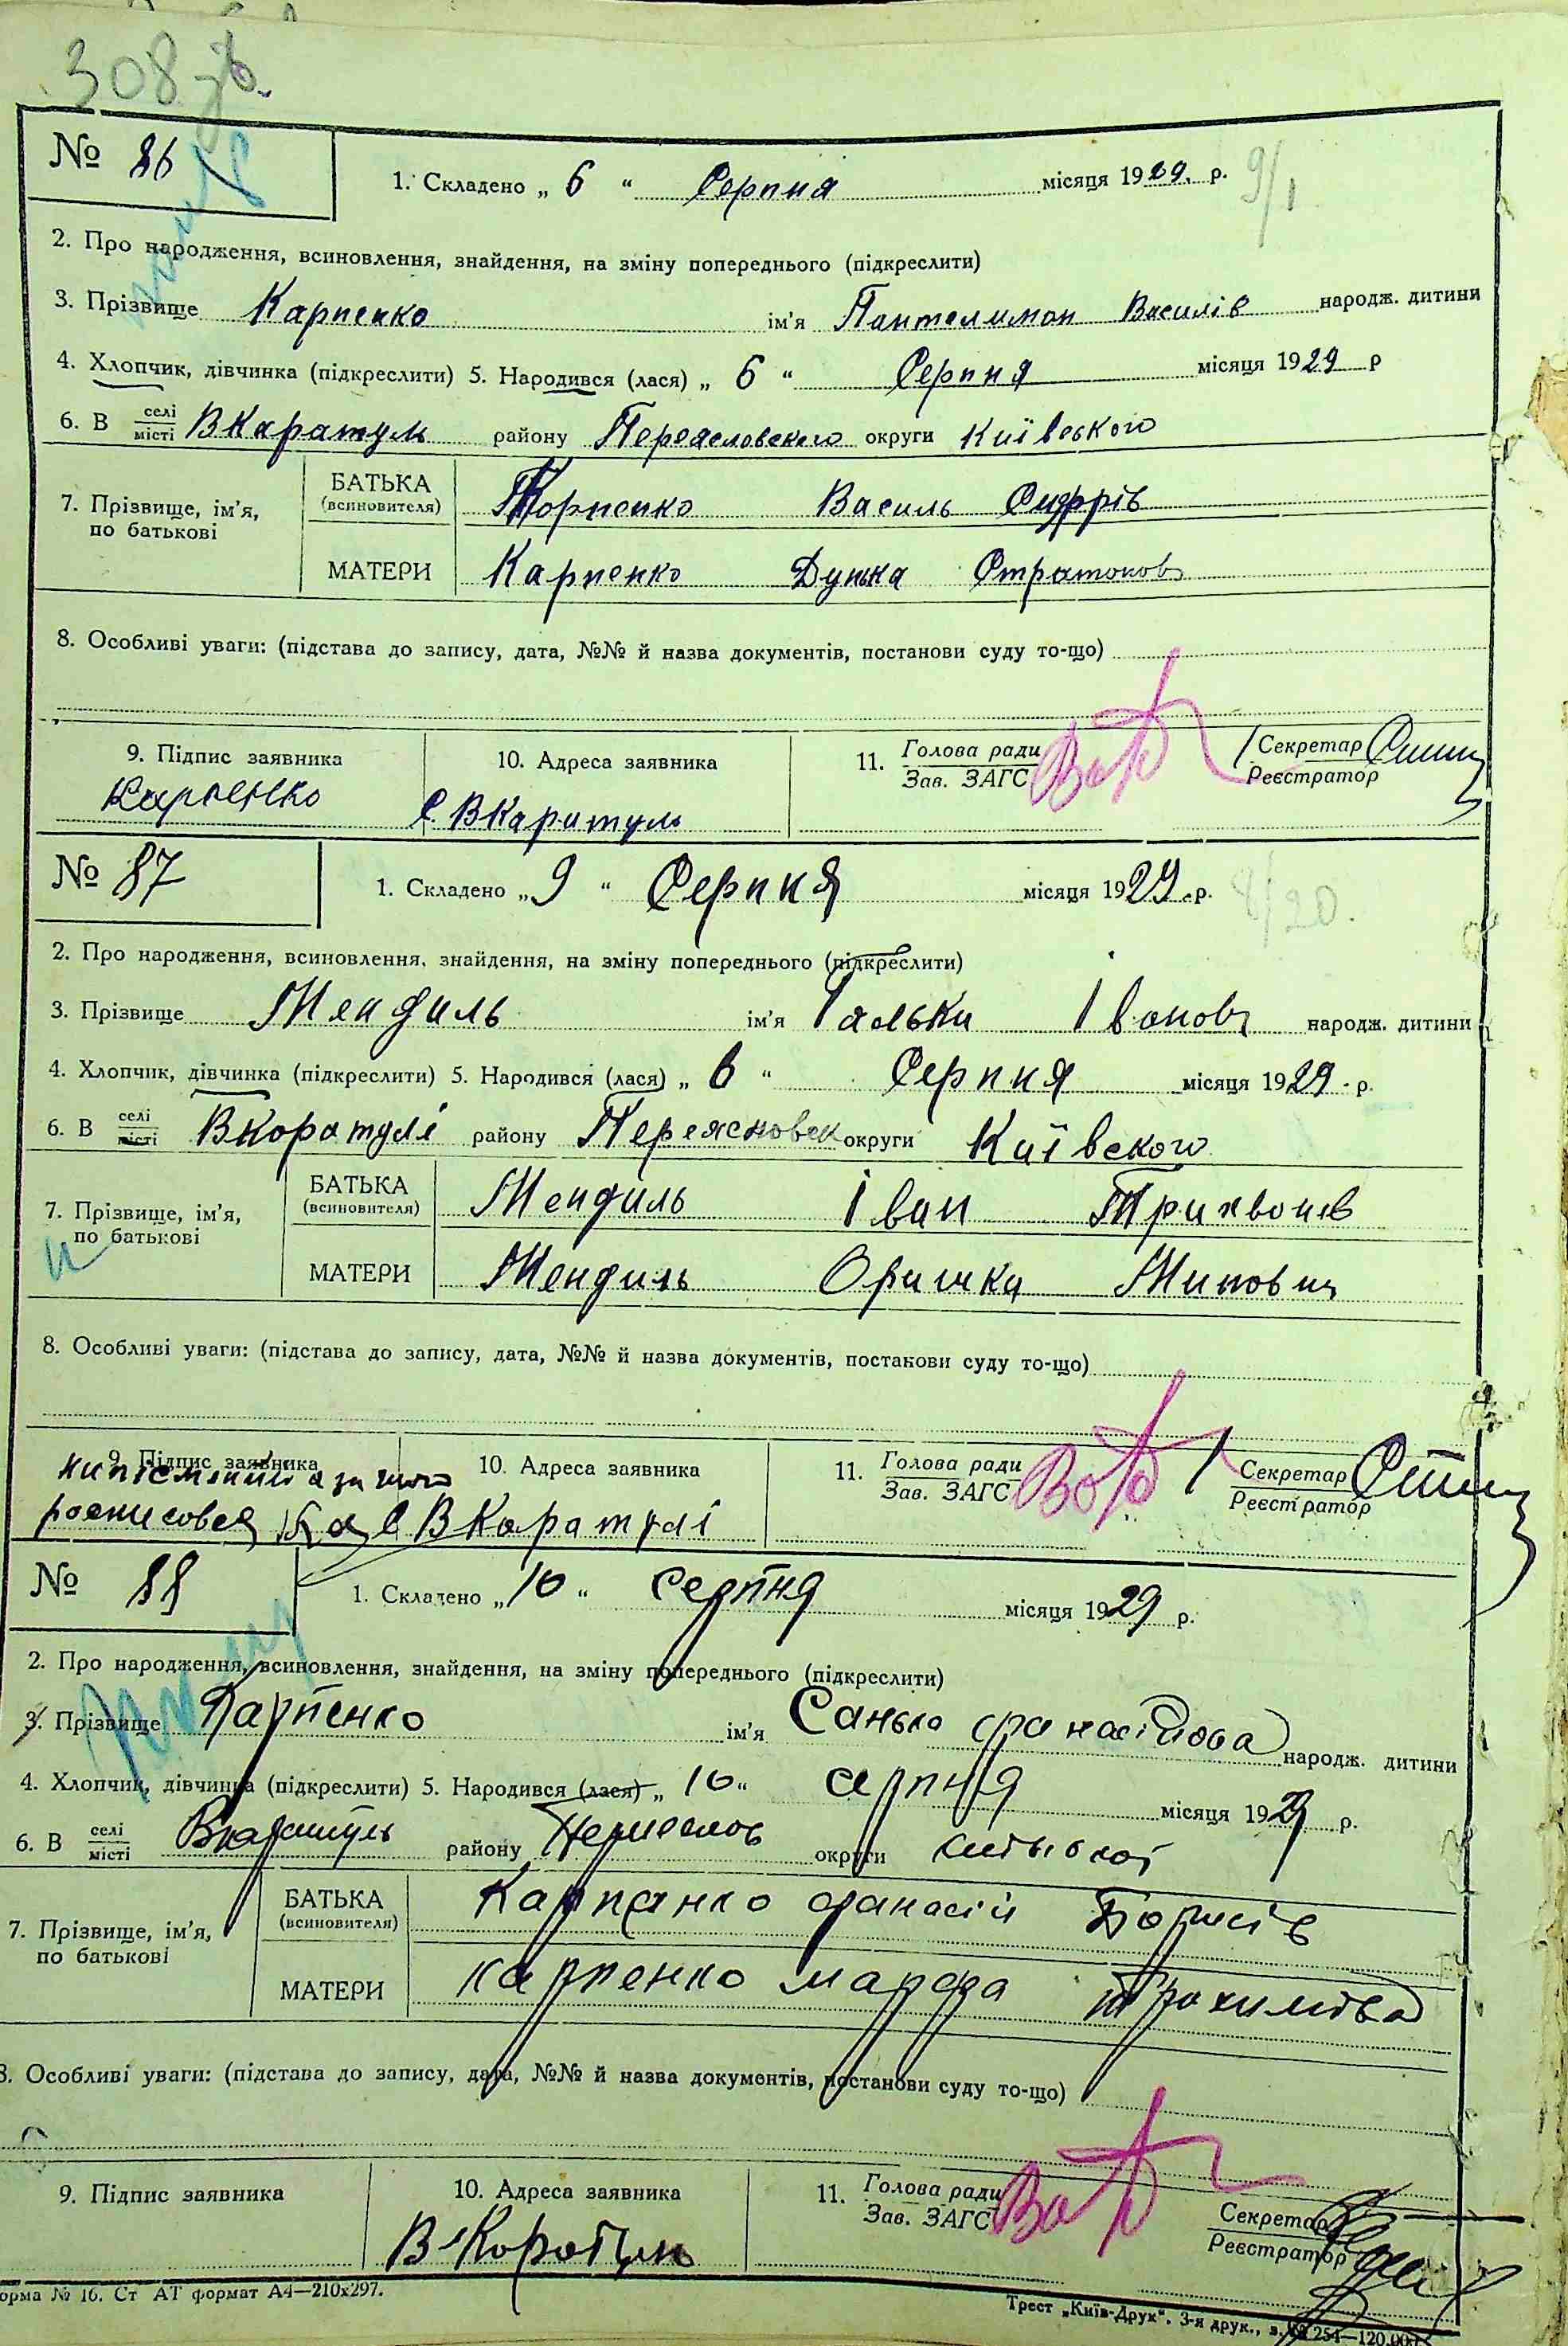 308 зв.
№ 86
1. Складено „ 6 “ Серпня місяця 1929. р. 9/1
2. Про народження, всиновлення, знайдення, на зміну попереднього (підкреслити)
3. Прізвище Карпенко ім'я Пантелимон Василів народж. дитини
4. Хлопчик, дівчинка (підкреслити) 5. Народився (лася) „ 6 “ Серпня місяця 1929 р
6. В селі місті ВКаратуль району Переясловского округи Київського
7. Прізвище, ім'я, по батькові
БАТЬКА (всиновителя) Карпенко Василь
МАТЕРИ Карпенко Дунька Стратонов
8. Особливі уваги: (підстава до запису, дата, №№ й назва документів, постанови суду то-що)
9. Підпис заявника 10. Адреса заявника 11. Голова ради Зав. ЗАГС Секретар Реєстратор
Карпенко С. ВКаратуль
№ 87
1. Складено „ 9 “ Серпня місяця 1929 р. 8/20.
2. Про народження, всиновлення, знайдення, на зміну попереднього (підкреслити)
3. Прізвище Мендиль ім'я Галька Іванов народж. дитини
4. Хлопчик, дівчинка (підкреслити) 5. Народився (лася) „ 6 “ Серпня місяця 1929 р.
6. В селі місті ВКоратулі району Переясловск округи Київского
7. Прізвище, ім'я, по батькові
БАТЬКА (всиновителя) Мендиль Іван Трихвонів
МАТЕРИ Мендиль Оришка
8. Особливі уваги: (підстава до запису, дата, №№ й назва документів, постанови суду то-що)
9. Підпис заявника 10. Адреса заявника 11. Голова ради Зав. ЗАГС Секретар Реєстратор
а за його
росписовся С ВКаратулі
№ 88
1. Складено „ 10 “ серпня місяця 1929 р.
2. Про народження, всиновлення, знайдення, на зміну попереднього (підкреслити)
3. Прізвище Карпенко ім'я Санька народж. дитини
4. Хлопчик, дівчинка (підкреслити) 5. Народився (лася) „ 10 “ серпня місяця 1929 р.
6. В селі місті Вкаратуль району округи
7. Прізвище, ім'я, по батькові
БАТЬКА (всиновителя) Карпенко Борисів
МАТЕРИ карпенко марфа трохимівна
8. Особливі уваги: (підстава до запису, дата, №№ й назва документів, постанови суду то-що)
9. Підпис заявника 10. Адреса заявника 11. Голова ради Зав. ЗАГС Секретар Реєстратор
В Коротуль
орма № 16. Ст АТ формат А4—210х297.
Трест „Київ-Друк“. 3-я друк., з. 254—120.00